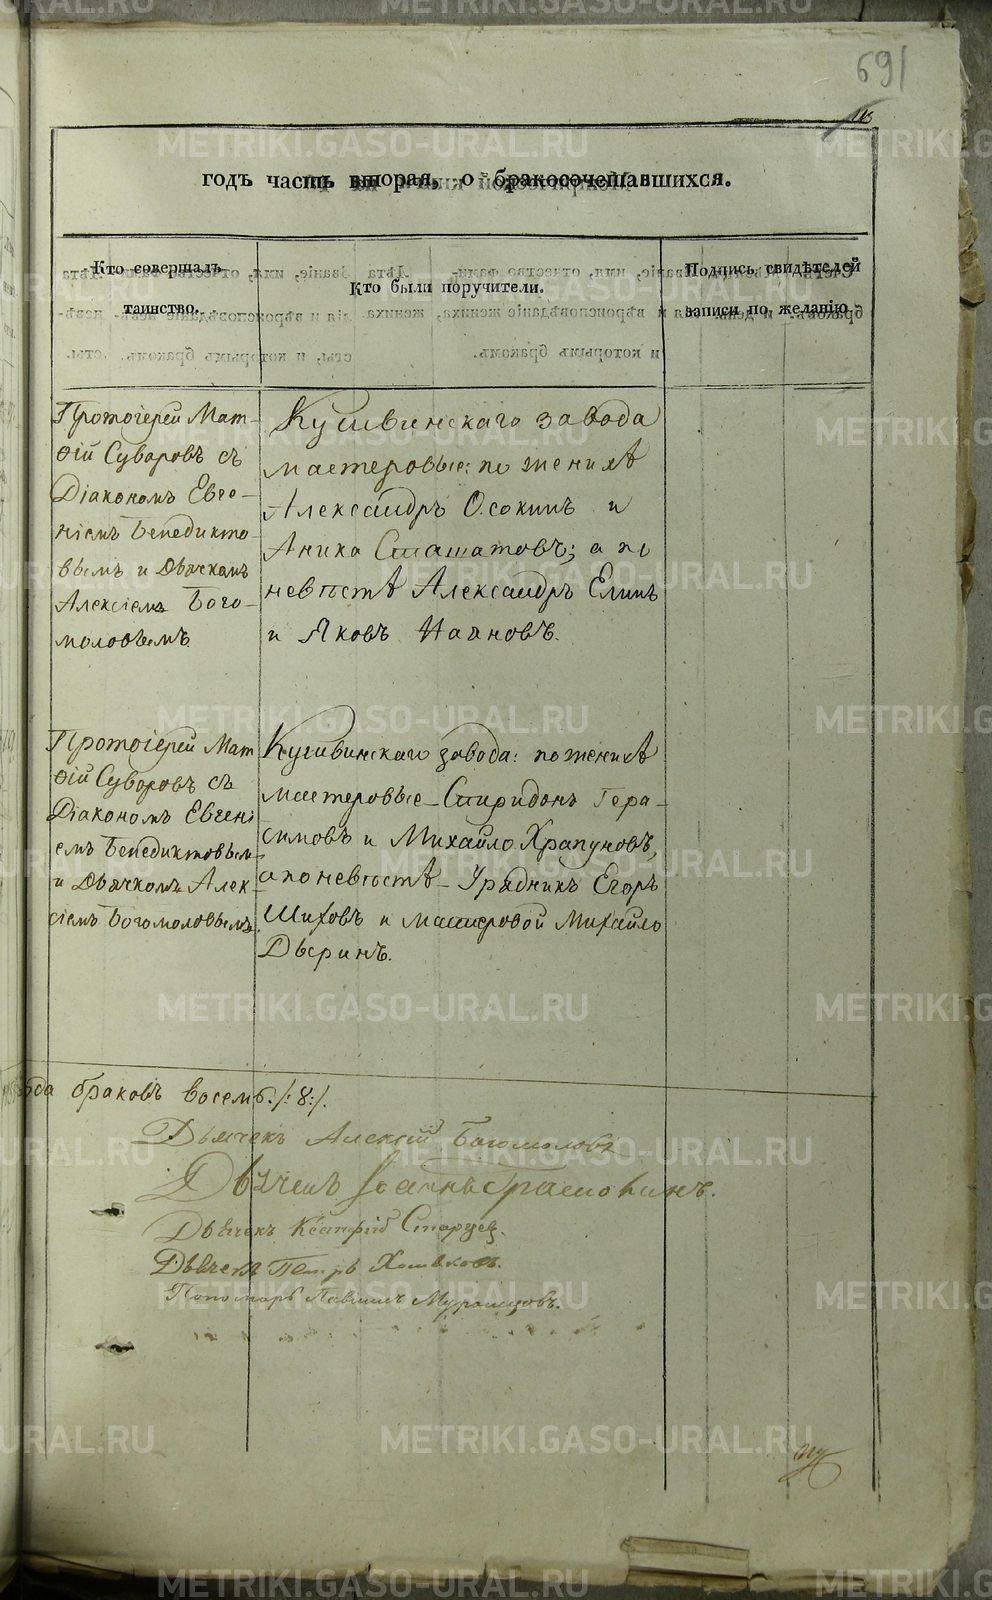 691
116
годъ часть вторая, о бракосочетавшихся.
Кто совершалъ
таинство.
Кто были поручители.
Подпись свидѣтелей
записи по желанію.
Протоіерей Мат-
ѳій Суворовъ съ
Діакономъ Евге-
ніемъ Бенедикто-
вымъ и Дьячкомъ
Алексіемъ Бого-
моловымъ.
Кушвинскаго завода
мастеровые: по женихѣ
Александръ Осокинъ и
Аника Сташатовъ; а по
невѣстѣ Александръ Елинъ
и Яковъ
Протоіерей Мат
ѳій Суворовъ съ
Діакономъ Евгені
емъ Бенедиктовым
и Дьячкомъ Алек-
сіемъ Богомоловымъ.
Кушвинскаго завода: по женихѣ
мастеровые Спиридонъ Гера-
симовъ и Михайло Храпуновъ,
а по невѣстѣ Урядникъ Егоръ
Шиховъ и мастеровой Михайло
Дьяринъ.
браковъ восемь /:8:/.
Дьячекъ Алексій Богомоловъ
Дьячекъ Іоаннъ
Дьячекъ Старцев.
Дьячекъ Петръ Хомяковъ.
Пономарь Павелъ Мурашовъ.
METRIKI.GASO-URAL.RU